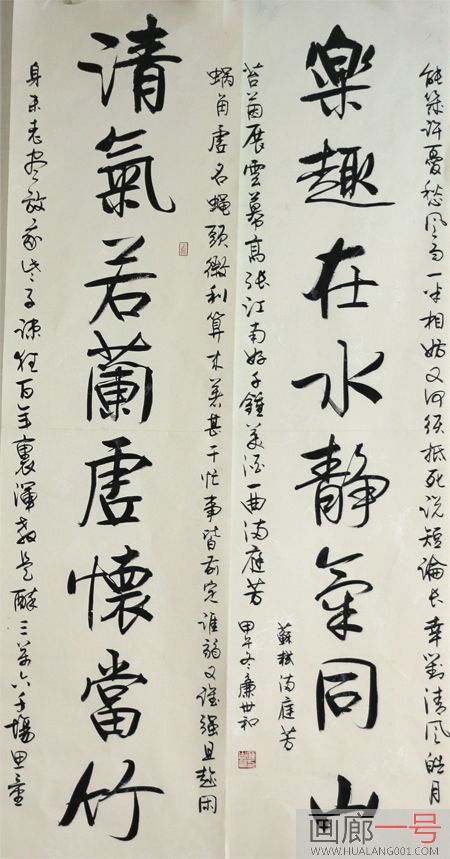 能幾許憂愁风雨一半相妨又何须抵死说短論长幸對清风皓月
樂趣在水靜氣同山
蘇軾满庭芳
苔茵展雲幕高张江南好千鍾美酒一曲满庭芳
甲午冬廉世和
蝸角虚名蝇頭微利算来著甚干忙事皆前定谁弱又谁强且趁闲
清氣若蘭虚懷當竹
身未老尽放我些子疎狂百年裏渾教是醉三萬六千場思量
画廊一号
WWW.HUALANG001.COM